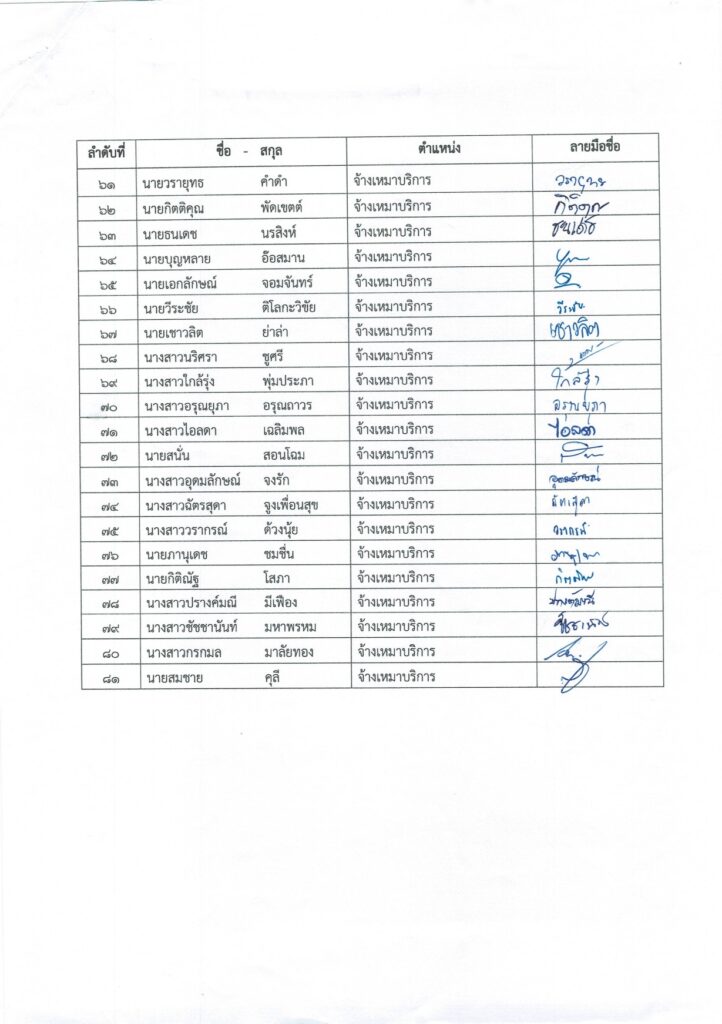 ลำดับที่ ชื่อ - สกุล ตำแหน่ง ลายมือชื่อ
๖๑ นายวรายุทธ คำดำ จ้างเหมาบริการ
๖๒ นายกิตติคุณ พัดเขตต์ จ้างเหมาบริการ กิติคุณ
๖๓ นายธนเดช นรสิงห์ จ้างเหมาบริการ ธนเดช
๖๔ นายบุญหลาย อ๊อสมาน จ้างเหมาบริการ
๖๕ นายเอกลักษณ์ จอมจันทร์ จ้างเหมาบริการ
๖๖ นายวีระชัย ติโลกะวิขัย จ้างเหมาบริการ
๖๗ นายเชาวลิต ย่าล่า จ้างเหมาบริการ เชาวลิต
๖๘ นางสาวนริศรา ชูศรี จ้างเหมาบริการ
๖๙ นางสาวใกล้รุ่ง พุ่มประภา จ้างเหมาบริการ
๗๐ นางสาวอรุณยุภา อรุณถาวร จ้างเหมาบริการ อรุณยุภา
๗๑ นางสาวไอลดา เฉลิมพล จ้างเหมาบริการ ไอลดา
๗๒ นายสนั่น สอนโฉม จ้างเหมาบริการ
๗๓ นางสาวอุดมลักษณ์ จงรัก จ้างเหมาบริการ อุดมลักษณ์
๗๔ นางสาวฉัตรสุดา จูงเพื่อนสุข จ้างเหมาบริการ
๗๕ นางสาววรากรณ์ ด้วงนุ้ย จ้างเหมาบริการ วรากรณ์
๗๖ นายภานุเดช ชมชื่น จ้างเหมาบริการ
๗๗ นายกิติณัฐ โสภา จ้างเหมาบริการ
๗๘ นางสาวปรางค์มณี มีเฟือง จ้างเหมาบริการ
๗๙ นางสาวชัชชานันท์ มหาพรหม จ้างเหมาบริการ
๘๐ นางสาวกรกมล มาลัยทอง จ้างเหมาบริการ
๘๑ นายสมชาย คุลี จ้างเหมาบริการ